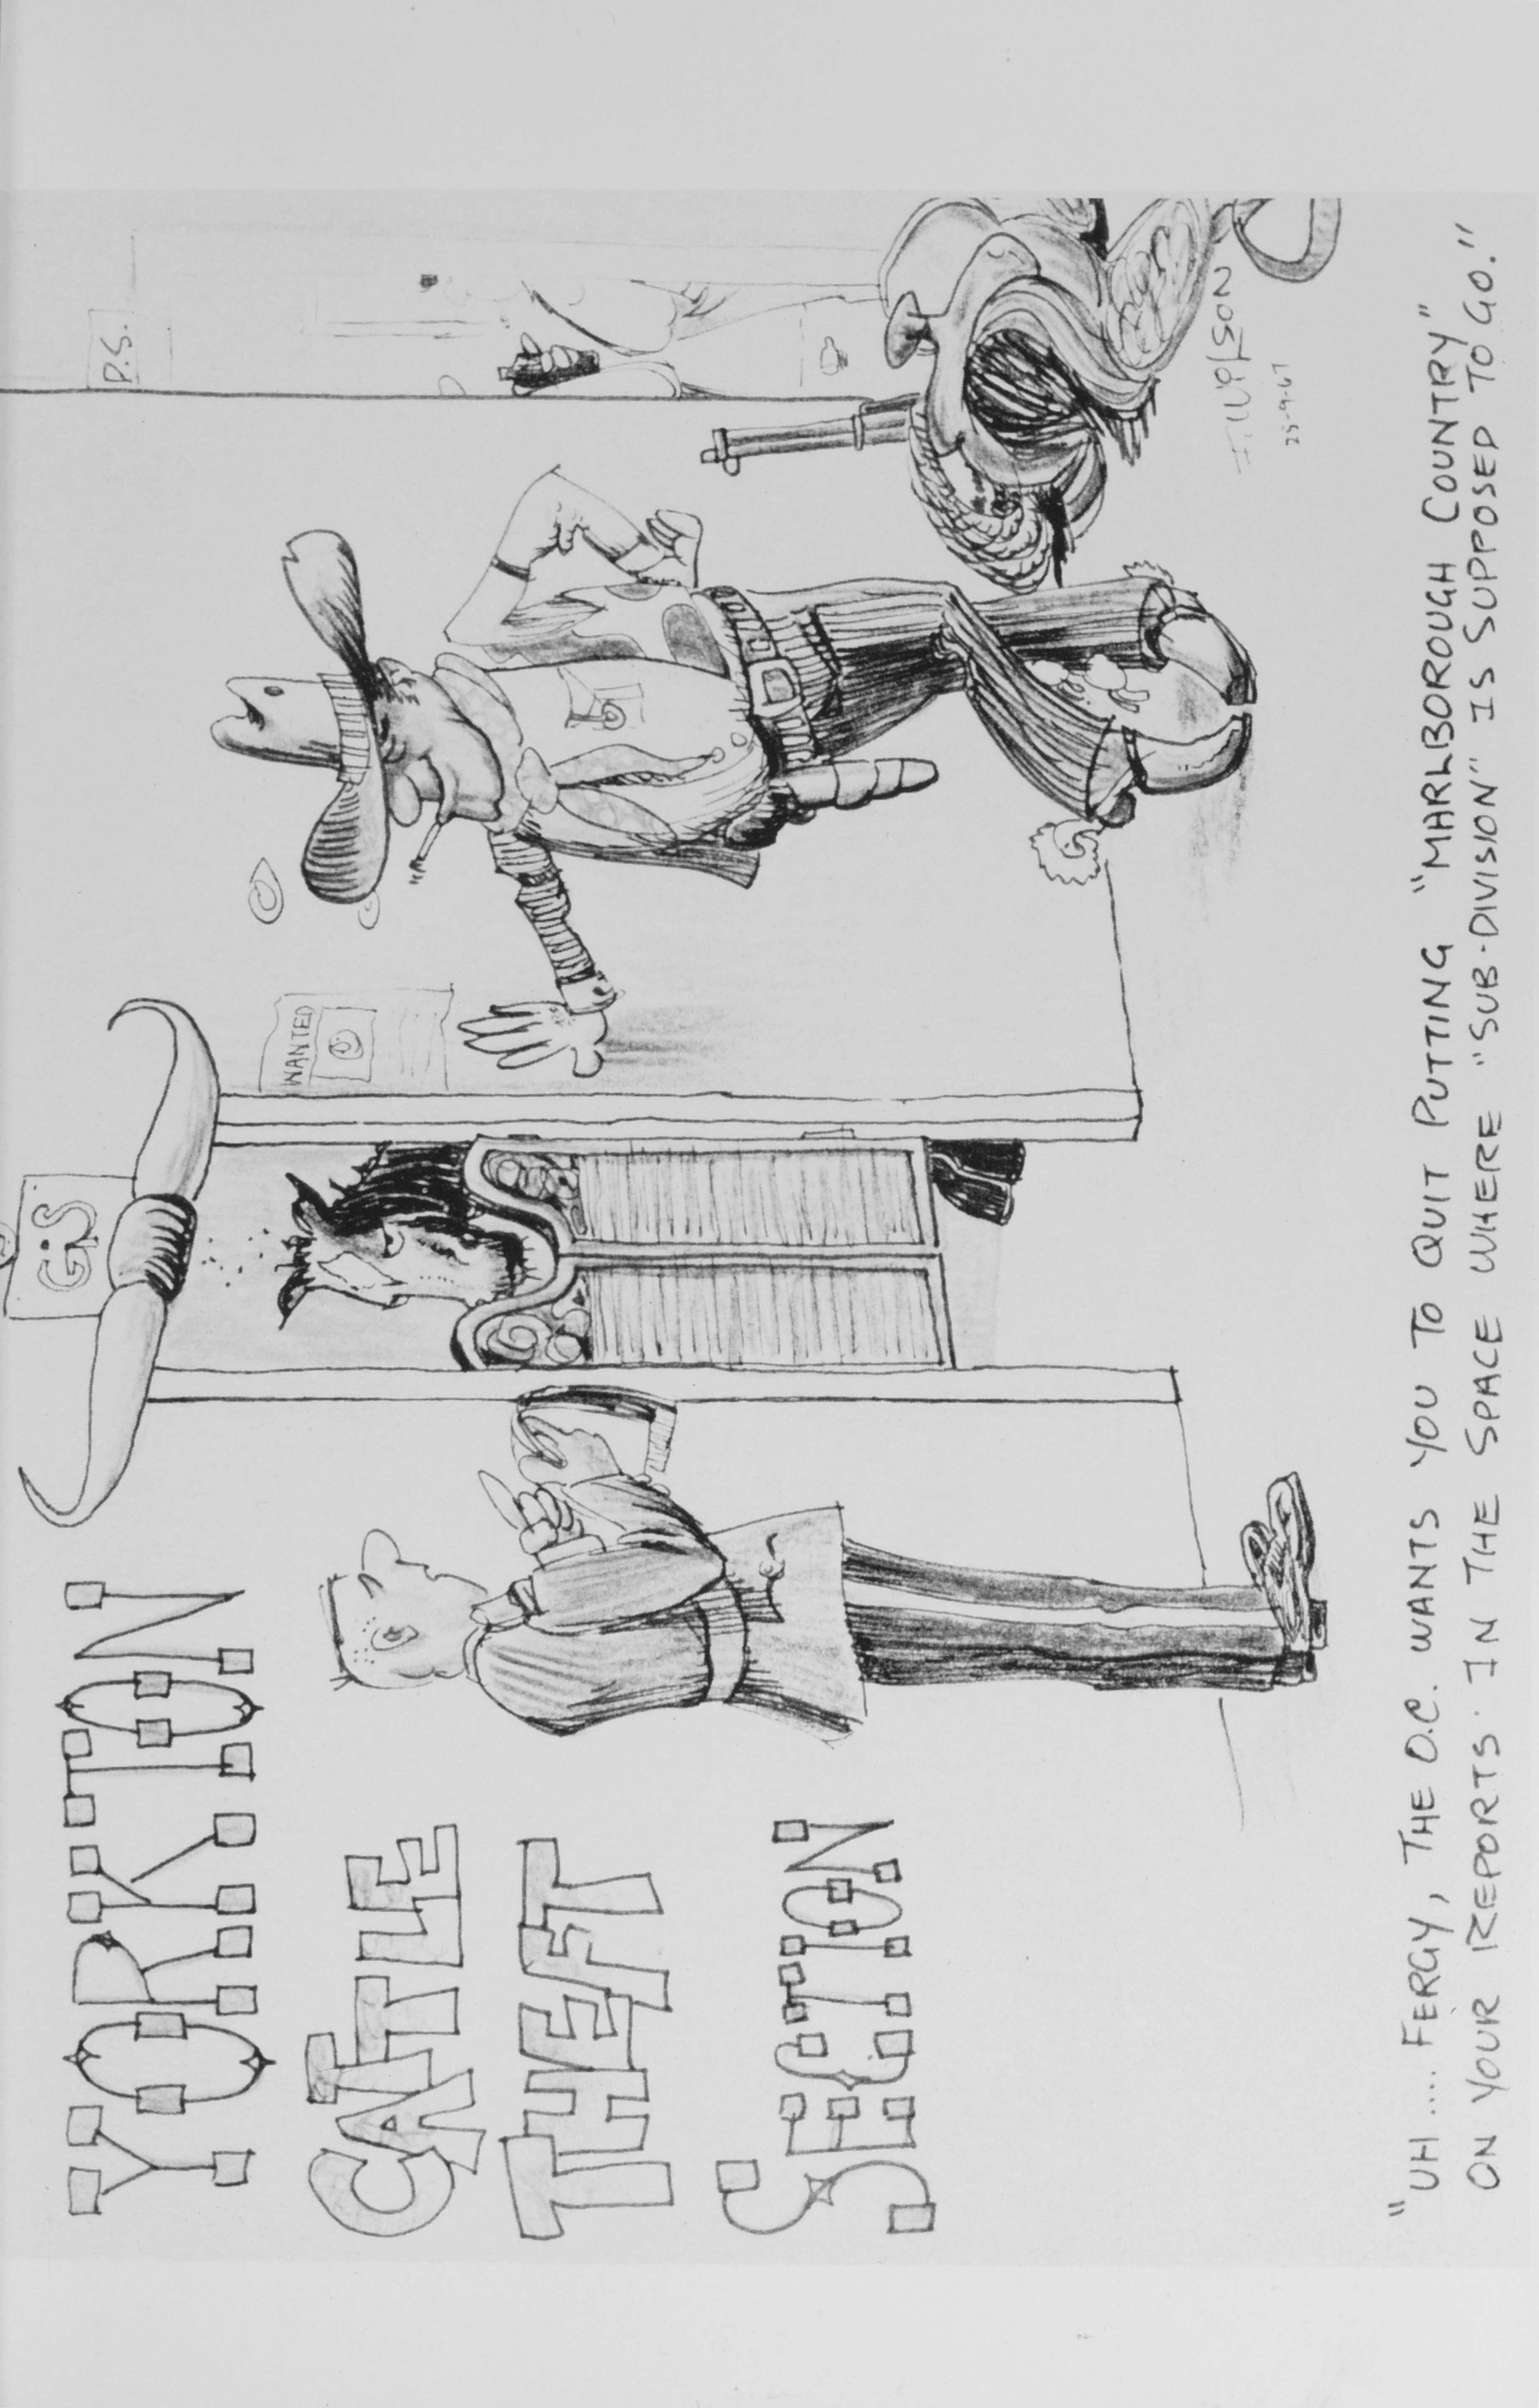 YORKTON
CATTLE
THEFT
SECTION
GIS
WANTED
P.S.
25-9-67
"UH ..... FERGY, THE O.C. WANTS YOU TO QUIT PUTTING "MARLBOROUGH COUNTRY"
ON YOUR REPORTS IN THE SPACE WHERE "SUB-DIVISION" IS SUPPOSED TO GO."